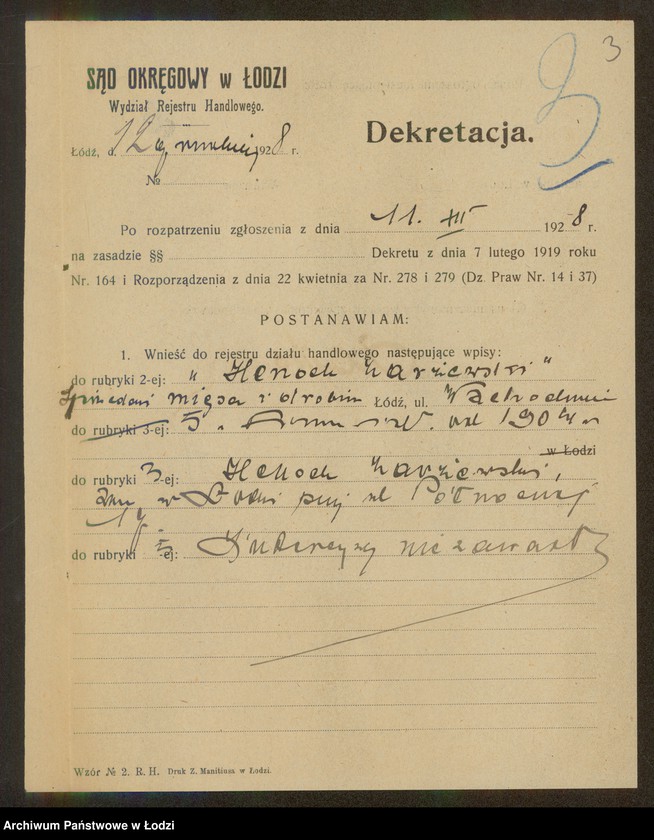 3
SĄD OKRĘGOWY w ŁODZI
Wydział Rejestru Handlowego.
Łódź, d. 12 grudnia 1928 r.
№
Dekretacja.
Po rozpatrzeniu zgłoszenia z dnia 11. XII 1928 r.
na zasadzie §§ Dekretu z dnia 7 lutego 1919 roku
Nr. 164 i Rozporządzenia z dnia 22 kwietnia za Nr. 278 i 279 (Dz. Praw Nr. 14 i 37)
POSTANAWIAM:
1. Wnieść do rejestru działu handlowego następujące wpisy:
do rubryki 2-ej: „Henoch Zarzewski"
Sprzedaż mięsa i drobiu Łódź, ul. Zachodnia
do rubryki 3-ej: 5. od 1904 r
w Łodzi
do rubryki 3-ej: Henoch Zarzewski,
zam w Łodzi przy ul Północnej
19.
do rubryki 5-ej: Intercyzy nie zawarł
Wzór № 2. R. H. Druk Z. Manitiusa w Łodzi.
Archiwum Państwowe w Łodzi